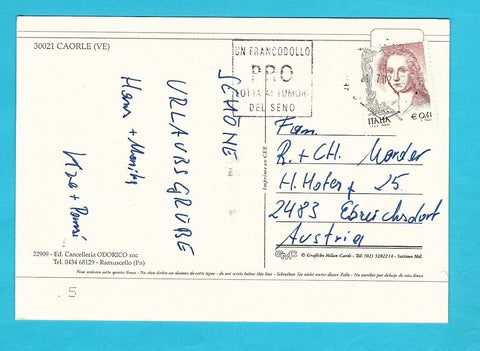 30021 CAORLE (VE)
UN FRANCOBOLLO
PRO
LOTTA AI TUMORI
DEL SENO
ITALIA
€ 0,41
SCHÖNE
URLAUBSGRÜßE
Hans + Monika
Fam.
R. + CH.
H. Hofer 25.
2483 Ebreichsdorf
Austria
Imprimé en CEE
22909 - Ed. Cancelleria ODORICO snc
Tel. 0434 68129 - Ramuscello (Pn)
GMC © Grafiche Milan Cards - Tel. (02) 3282214 - Settimo Mil.
Non scrivere sotto questa linea - Ne rien écrire au dessous de cette ligne - do not write below this line - Schreiben Sie nicht unter dieser Zeile - No escribir por debajo de esta línea
5